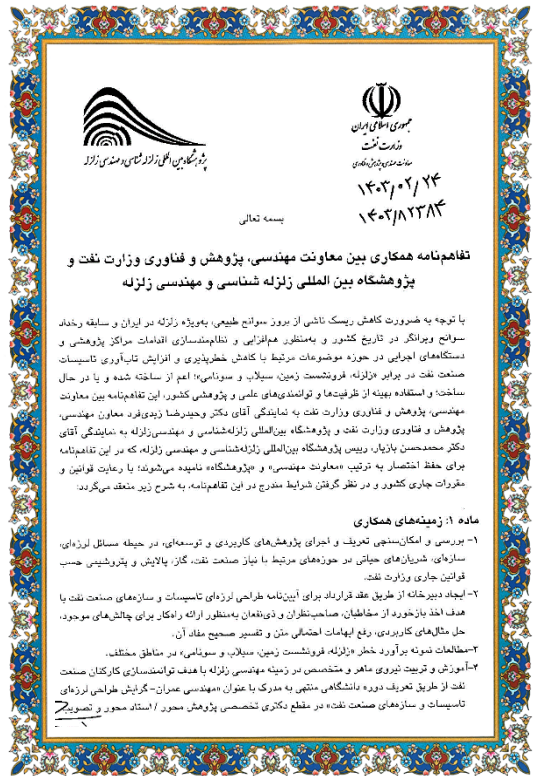 پژوهشگاه بین المللی زلزله شناسی و مهندسی زلزله
جمهوری اسلامی ایران
وزارت نفت
معاونت مهندسی، پژوهش و فناوری
۱۴۰۳/۰۲/۲۴
۱۴۰۳/۸۲۳۸۴
بسمه تعالی
تفاهم‌نامه همکاری بین معاونت مهندسی، پژوهش و فناوری وزارت نفت و
پژوهشگاه بین المللی زلزله شناسی و مهندسی زلزله
با توجه به ضرورت کاهش ریسک ناشی از بروز سوانح طبیعی، به‌ویژه زلزله در ایران و سابقه رخداد
سوانح ویرانگر در تاریخ کشور و به‌منظور هم‌افزایی و نظام‌مندسازی اقدامات مراکز پژوهشی و
دستگاه‌های اجرایی در حوزه موضوعات مرتبط با کاهش خطرپذیری و افزایش تاب‌آوری تاسیسات
صنعت نفت در برابر «زلزله، فرونشست زمین، سیلاب و سونامی»؛ اعم از ساخته شده و یا در حال
ساخت؛ و استفاده بهینه از ظرفیت‌ها و توانمندی‌های علمی و پژوهشی کشور، این تفاهم‌نامه بین معاونت
مهندسی، پژوهش و فناوری وزارت نفت به نمایندگی آقای دکتر وحیدرضا زیدی‌فرد معاون مهندسی،
پژوهش و فناوری وزارت نفت و پژوهشگاه بین‌المللی زلزله‌شناسی و مهندسی‌زلزله به نمایندگی آقای
دکتر محمدحسن بازیار، رییس پژوهشگاه بین‌المللی زلزله‌شناسی و مهندسی زلزله، که در این تفاهم‌نامه
برای حفظ اختصار به ترتیب «معاونت مهندسی» و «پژوهشگاه» نامیده می‌شوند؛ با رعایت قوانین و
مقررات جاری کشور و در نظر گرفتن شرایط مندرج در این تفاهم‌نامه، به شرح زیر منعقد می‌گردد:
ماده ۱: زمینه‌های همکاری
۱- بررسی و امکان‌سنجی تعریف و اجرای پژوهش‌های کاربردی و توسعه‌ای، در حیطه مسائل لرزه‌ای،
سازه‌ای، شریان‌های حیاتی در حوزه‌های مرتبط با نیاز صنعت نفت، گاز، پالایش و پتروشیمی حسب
قوانین جاری وزارت نفت.
۲- ایجاد دبیرخانه از طریق عقد قرارداد برای آیین‌نامه طراحی لرزه‌ای تاسیسات و سازه‌های صنعت نفت با
هدف اخذ بازخورد از مخاطبان، صاحب‌نظران و ذی‌نفعان به‌منظور ارائه راه‌کار برای چالش‌های موجود،
حل مثال‌های کاربردی، رفع ابهامات احتمالی متن و تفسیر صحیح مفاد آن.
۳-مطالعات نمونه برآورد خطر «زلزله، فرونشست زمین، سیلاب و سونامی» در مناطق مختلف.
۴-آموزش و تربیت نیروی ماهر و متخصص در زمینه مهندسی زلزله با هدف توانمندسازی کارکنان صنعت
نفت از طریق تعریف دوره دانشگاهی منتهی به مدرک با عنوان «مهندسی عمران- گرایش طراحی لرزه‌ای
تاسیسات و سازه‌های صنعت نفت» در مقطع دکتری تخصصی پژوهش محور / استاد محور و تصویب